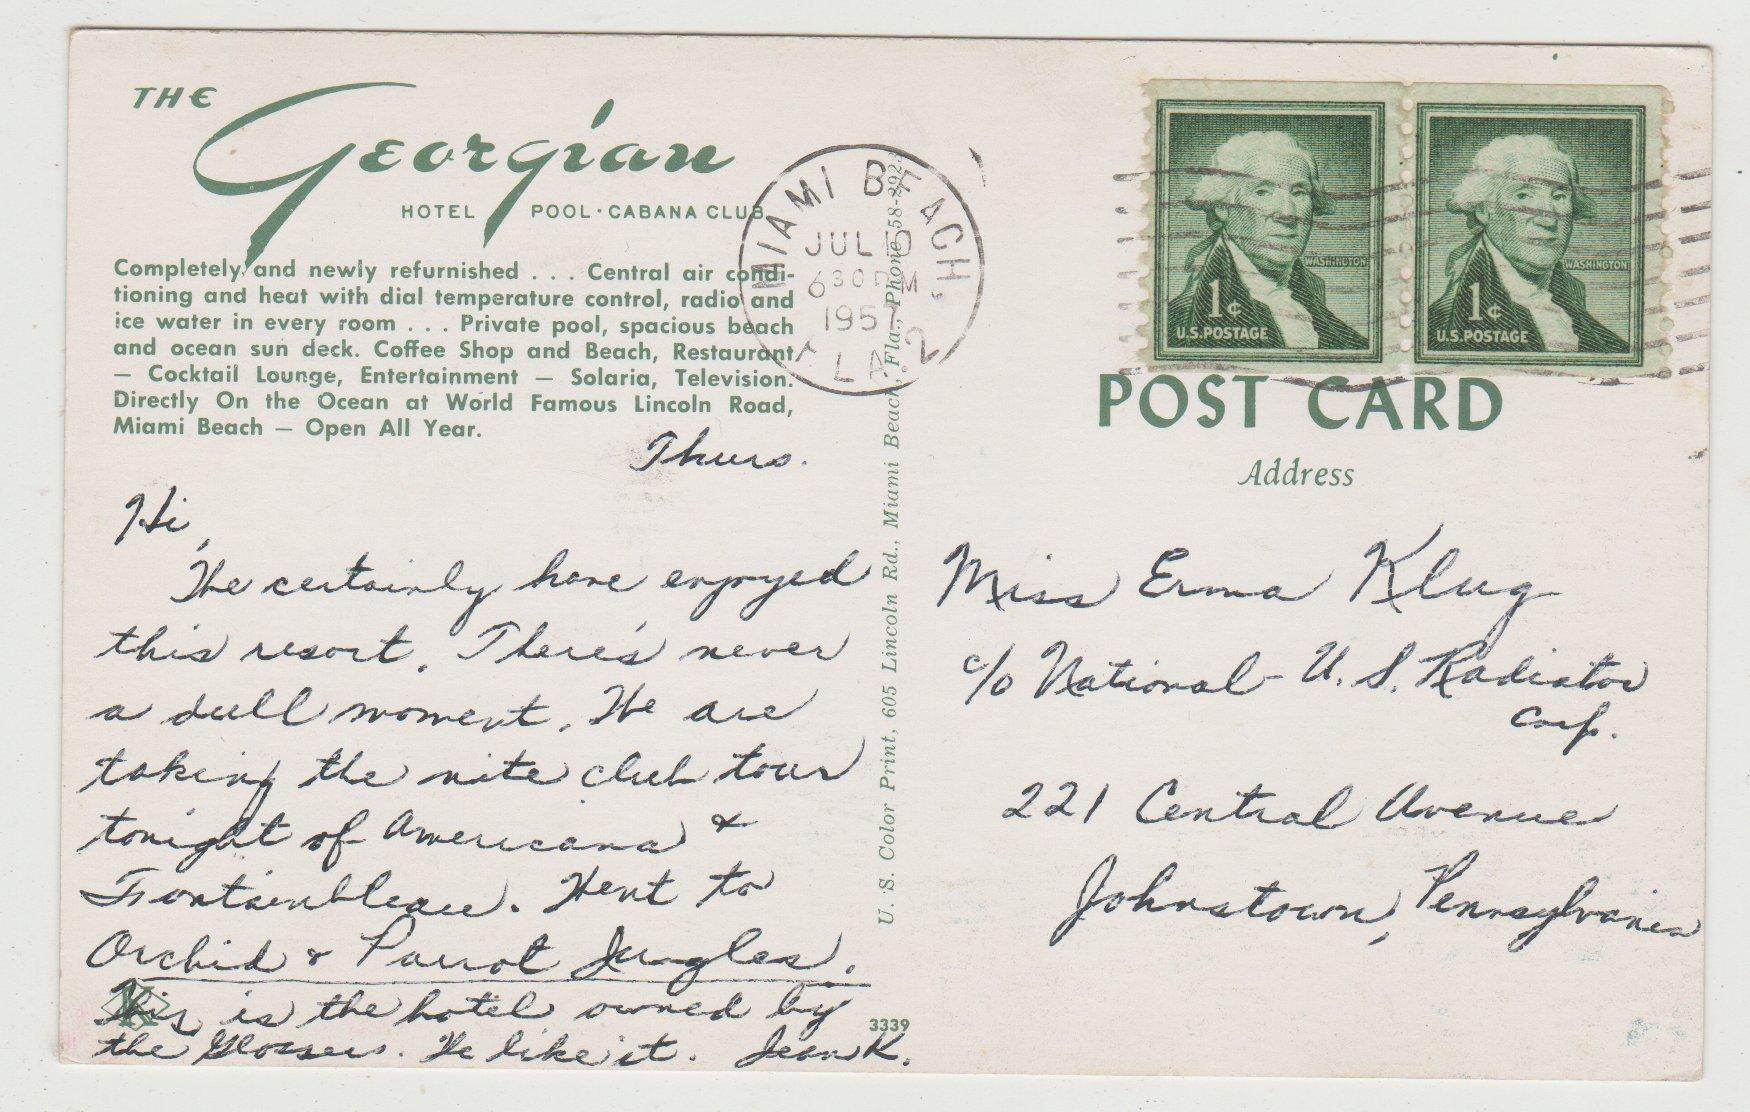 THE
Georgian
HOTEL POOL · CABANA CLUB
Completely and newly refurnished . . . Central air condi-
tioning and heat with dial temperature control, radio and
ice water in every room . . . Private pool, spacious beach
and ocean sun deck. Coffee Shop and Beach, Restaurant
— Cocktail Lounge, Entertainment — Solaria, Television.
Directly On the Ocean at World Famous Lincoln Road,
Miami Beach — Open All Year.
Thurs.
Hi,
We certainly have enjoyed
this resort. There's never
a dull moment. We are
taking the nite club tour
tonight of Americana &
Fontainbleau. Went to
Orchid & Parrot Jungles.
This is the hotel owned by
the Glossers. We like it. Jean K.
K
3339
U. S. Color Print, 605 Lincoln Rd., Miami Beach, Fla., Phone 58-2923
MIAMI BEACH,
JUL 10
6 30 PM
1957
FLA. 2
WASHINGTON
1¢
U.S. POSTAGE
WASHINGTON
1¢
U.S. POSTAGE
POST CARD
Address
Miss Erma Klug
c/o National-U.S. Radiator
Corp.
221 Central Avenue
Johnstown, Pennsylvania